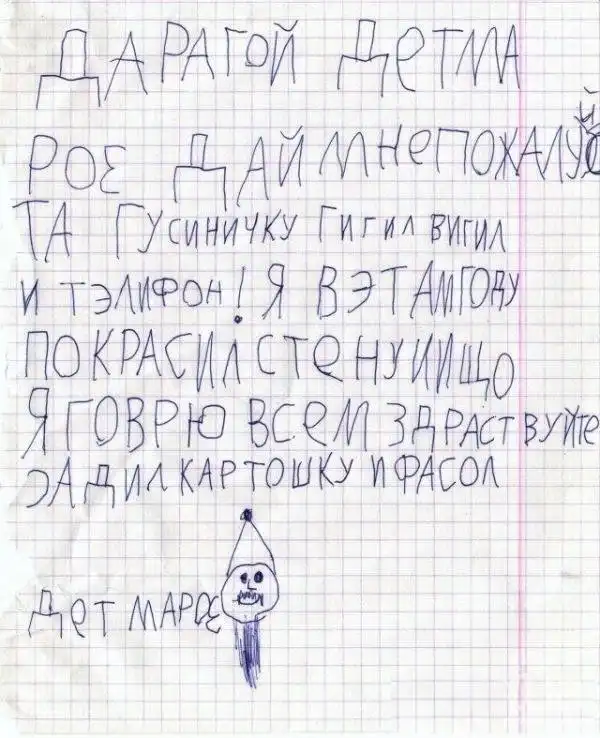 ДАРАГОЙ ДЕТМА
РОЗ ДАЙ МНЕ ПОЖАЛУЙС
ТА ГУСИНИЧКУ ГИГИЛ ВИГИЛ
И ТЭЛИФОН! Я В ЭТАМ ГОДУ
ПОКРАСИЛ СТЕНУ И ИЩО
Я ГОВРЮ ВСЕМ ЗДРАСТВУЙТЕ
ЭАДИЛ КАРТОШКУ И ФАСОЛ
ДЕТ МАРОЗ